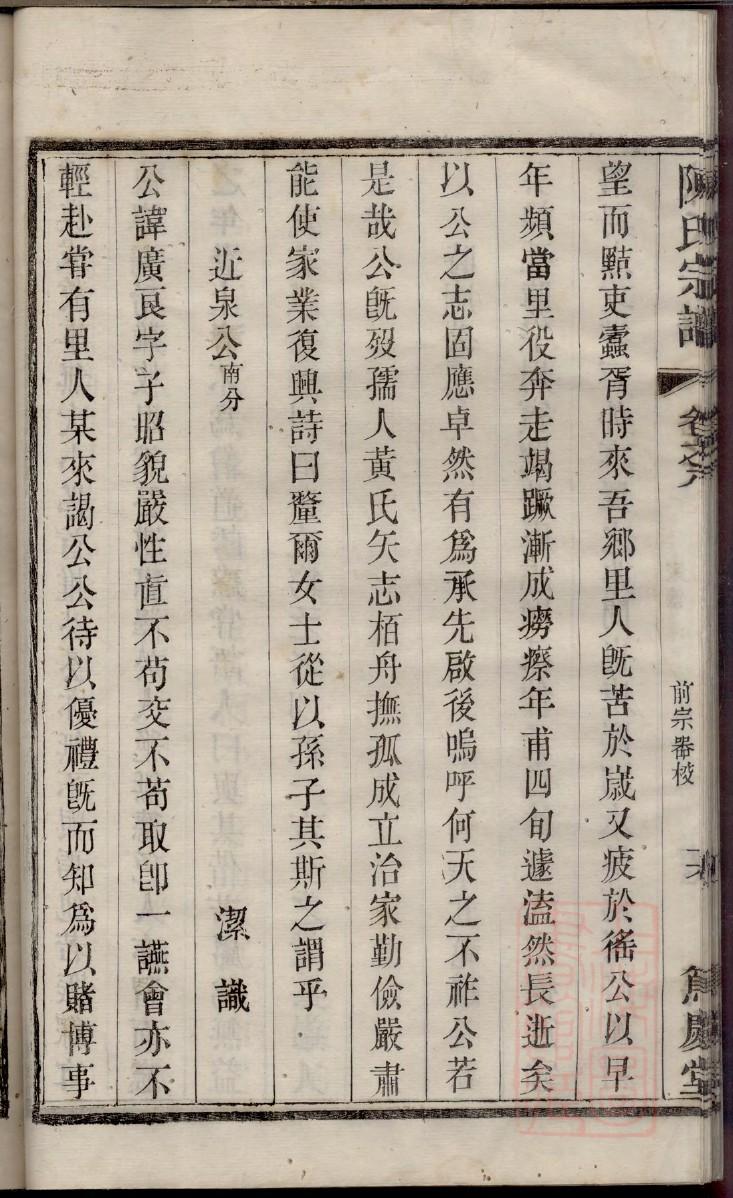 陳氏宗譜
卷之六
前宗器校
篤慶堂
望而黠吏蠹胥時來吾鄉里人旣苦於嵗又疲於徭公以早
年頻當里役奔走竭蹶漸成癆瘵年甫四旬遽溘然長逝矣
以公之志固應卓然有爲承先啟後嗚呼何天之不祚公若
是哉公旣歿孺人黄氏矢志栢舟撫孤成立治家勤儉嚴肅
能使家業復興詩曰釐爾女士從以孫子其斯之謂乎
潔識
近泉公南分
公諱廣良字子昭貌嚴性直不苟交不苟取卽一讌會亦不
輕赴甞有里人某來謁公公待以優禮旣而知爲以賭博事